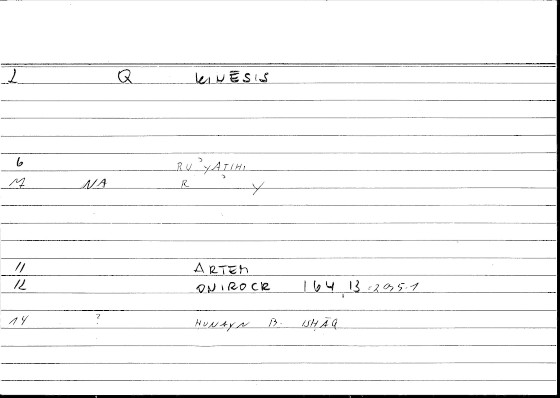 1 Q KINĒSIS
6 RUʾYATIHI
17 NA R ʾ Y
11 ARTEM
12 ONIROCR 164,13
14 ? HUNAYN B. ISHĀQ